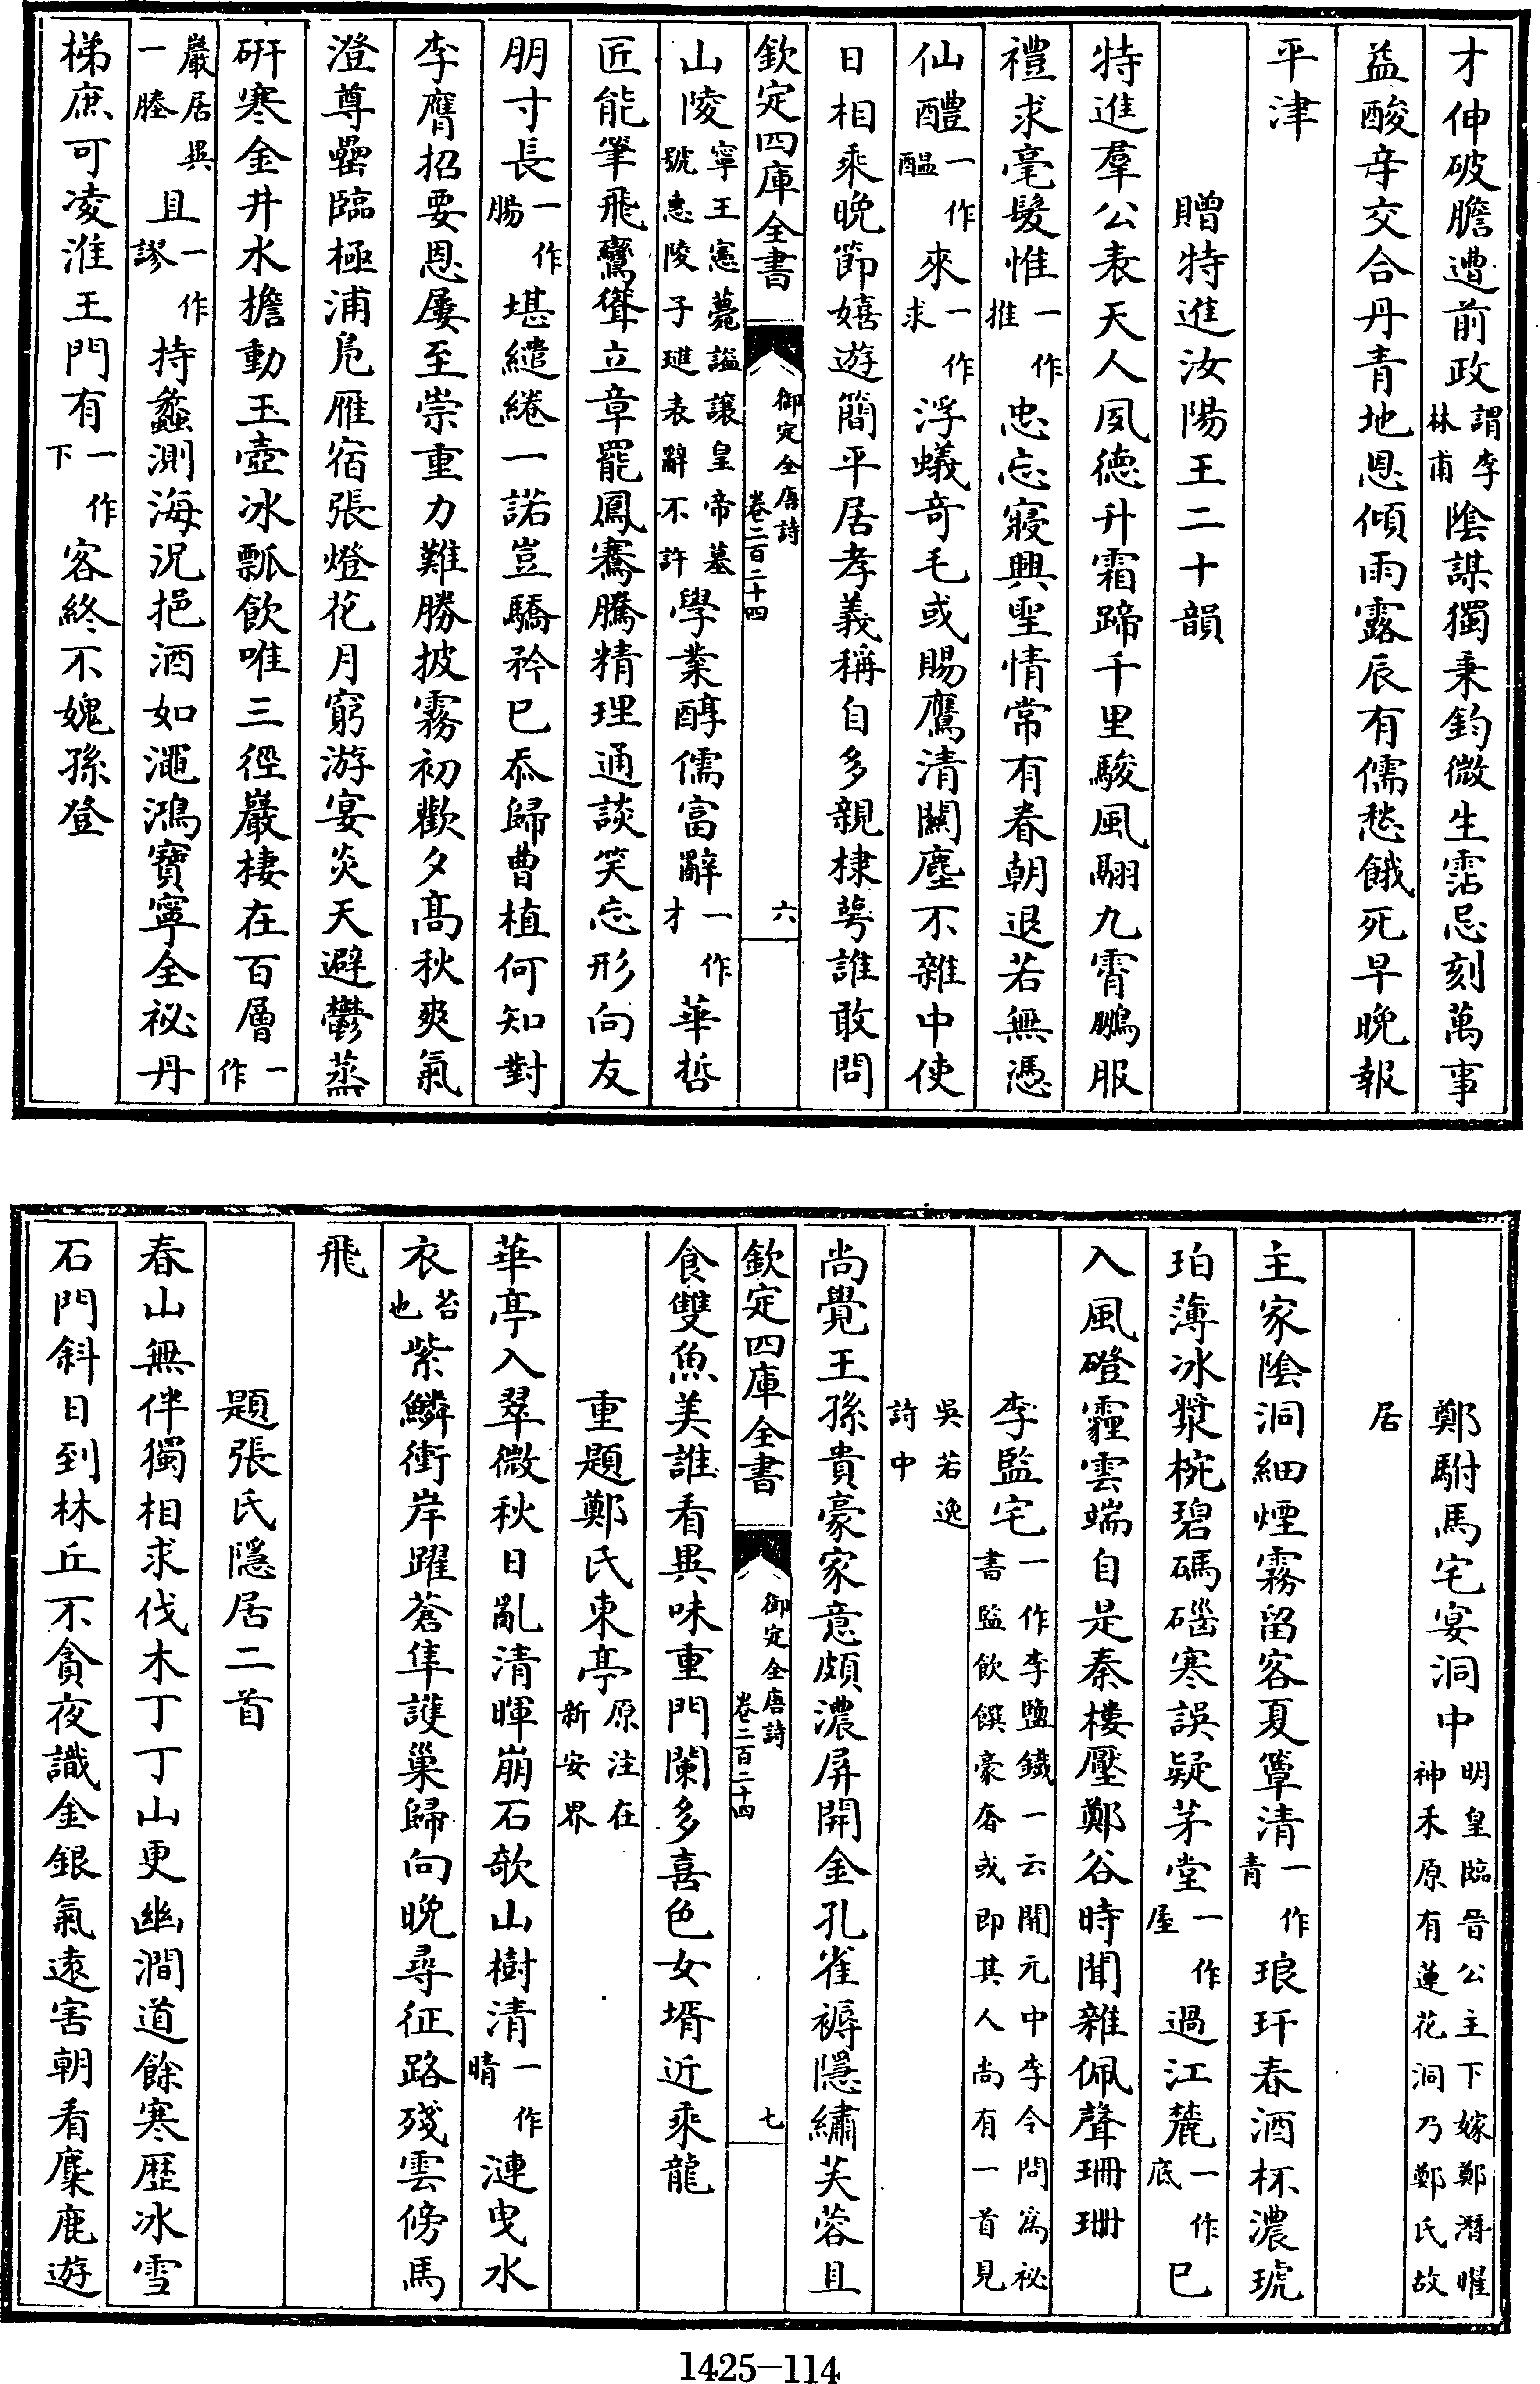 才伸破膽遭前政謂李林甫陰謀獨秉鈞微生霑忌刻萬事
益酸辛交合丹青地恩傾雨露辰有儒愁餓死早晚報
平津
贈特進汝陽王二十韻
特進羣公表天人夙德升霜蹄千里駿風翮九霄鵬服
禮求毫髮惟一作推忠忘寢興聖情常有眷朝退若無憑
仙醴一作醖來一作求浮蟻竒毛或賜鷹清關塵不雜中使
日相乘晚節嬉遊簡平居孝義稱自多親棣萼誰敢問
欽定四庫全書 御定全唐詩卷二百二十四 六
山陵寧王憲薨謚讓皇帝墓號惠陵子璡表辭不許學業醇儒富辭一作才華哲
匠能筆飛鸞聳立章罷鳳騫騰精理通談笑忘形向友
朋寸長一作腸堪繾綣一諾豈驕矜已忝歸曹植何知對
李膺招要恩屢至崇重力難勝披霧初歡夕高秋爽氣
澄尊罍臨極浦鳧雁宿張燈花月窮游宴炎天避鬱蒸
硏寒金井水檐動玉壺冰瓢飲唯三徑巖棲在百層一作
巖居異一塍且一作謬持蠡測海況挹酒如澠鴻寶寧全祕丹
梯庶可凌淮王門有一作下客終不媿孫登
鄭駙馬宅宴洞中明皇臨晉公主下嫁鄭潛曜神禾原有蓮花洞乃鄭氏故
居
主家陰洞細煙霧留客夏簟清一作青琅玕春酒杯濃琥
珀薄冰漿椀碧碼碯寒誤疑茅堂一作屋過江麓一作底已
入風磴霾雲端自是秦樓壓鄭谷時聞雜佩聲珊珊
李監宅一作李鹽鐵一云開元中李令問為祕書監飲饌豪奢或即其人尚有一首見
吳若逸詩中
尚覺王孫貴豪家意頗濃屏開金孔雀褥隱繡芙蓉且
欽定四庫全書 御定全唐詩卷二百二十四 七
食雙魚美誰看異味重門闌多喜色女壻近乘龍
重題鄭氏東亭原注在新安界
華亭入翠微秋日亂清暉崩石欹山樹清一作晴漣曳水
衣苔也紫鱗衝岸躍蒼隼護巢歸向晚尋征路殘雲傍馬
飛
題張氏隱居二首
春山無伴獨相求伐木丁丁山更幽澗道餘寒歷冰雪
石門斜日到林丘不貪夜識金銀氣遠害朝看麋鹿遊
1425-114